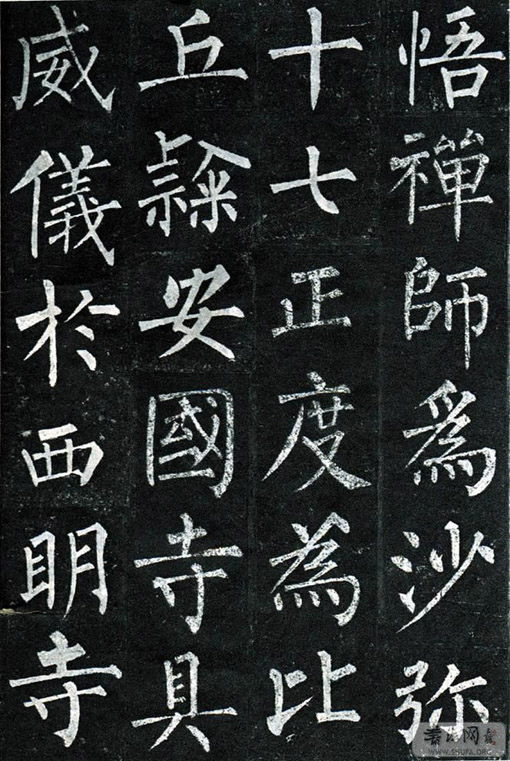 悟禪師爲沙弥
十七正度為比
丘𮂹安國寺具
威儀於西明寺
書法网
WWW.SHUFA.ORG